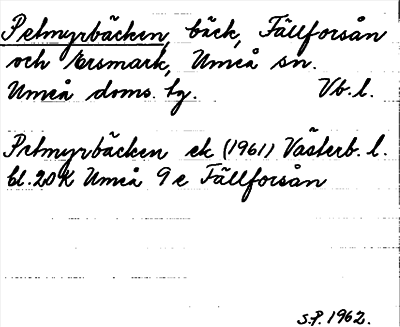 Petmyrbäcken, bäck, Fällforsån
och Ersmark, Umeå sn.
Umeå doms. tg. Vb. l.
Petmyrbäcken ek (1961) Västerb. l.
bl. 20 K Umeå 9 e Fällforsån
S.P. 1962.